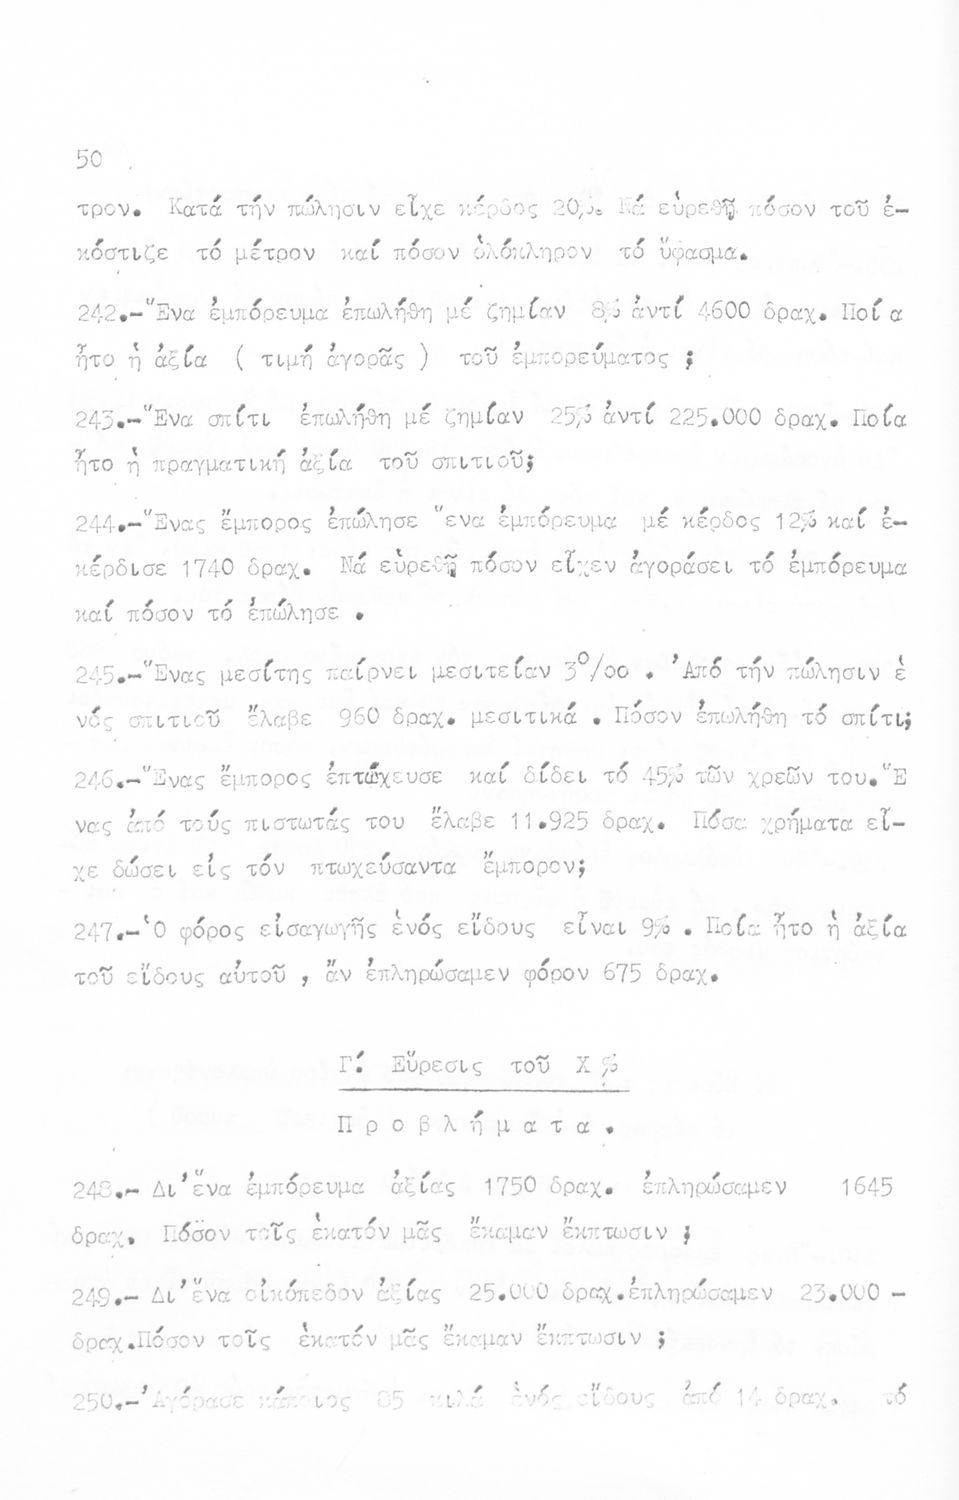 50
τρον. Κατά τήν πώλησιν εἶχε κέρδος 20%. Νά εὑρεθῇ πόσον τοῦ ἐ-
κόστιζε τό μέτρον καί πόσον ὁλόκληρον τό ὕφασμα.
242.-Ἕνα ἐμπόρευμα ἐπωλήθη μέ ζημίαν 8% ἀντί 4600 δραχ. Ποί α
ἦτο ἡ ἀξία ( τιμή ἀγορᾶς ) τοῦ ἐμπορεύματος ;
243.-Ἕνα σπίτι ἐπωλήθη μέ ζημίαν 25% ἀντί 225.000 δραχ. Ποία
ἦτο ἡ πραγματική ἀξία τοῦ σπιτιοῦ;
244.-Ἕνας ἔμπορος ἐπώλησε ἕνα ἐμπόρευμα μέ κέρδος 12% καί ἐ-
κέρδισε 1740 δραχ. Νά εὑρεθῇ πόσον εἶχεν ἀγοράσει τό ἐμπόρευμα
καί πόσον τό ἐπώλησε .
245.-Ἕνας μεσίτης παίρνει μεσιτείαν 3⁰/οο . Ἀπό τήν πώλησιν ἑ
νός σπιτιοῦ ἔλαβε 960 δραχ. μεσιτικά . Πόσον ἐπωλήθη τό σπίτι;
246.-Ἕνας ἔμπορος ἐπτώχευσε καί δίδει τό 45% τῶν χρεῶν του. Ἕ
νας ἀπό τούς πιστωτάς του ἔλαβε 11.925 δραχ. Πόσα χρήματα εἶ-
χε δώσει εἰς τόν πτωχεύσαντα ἔμπορον;
247.-Ὁ φόρος εἰσαγωγῆς ἑνός εἴδους εἶναι 9% . Ποία ἦτο ἡ ἀξία
τοῦ εἴδους αὐτοῦ , ἄν ἐπληρώσαμεν φόρον 675 δραχ.
Γ΄. Εὕρεσις τοῦ Χ %
Π ρ ο β λ ή μ α τ α .
248.- Δι'ἕνα ἐμπόρευμα ἀξίας 1750 δραχ. ἐπληρώσαμεν 1645
δραχ. Πόσον τοῖς ἑκατόν μᾶς ἔκαμαν ἔκπτωσιν ;
249.- Δι'ἕνα οἰκόπεδον ἀξίας 25.000 δραχ.ἐπληρώσαμεν 23.000 -
δραχ.Πόσον τοῖς ἑκατόν μᾶς ἔκαμαν ἔκπτωσιν ;
250.-Ἀγόρασε κάποιος 85 κιλά ἑνός εἴδους ἀπό 14 δραχ. τό